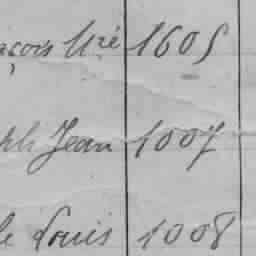 çois Uré 1605
ph Jean 1007
le Louis 1008